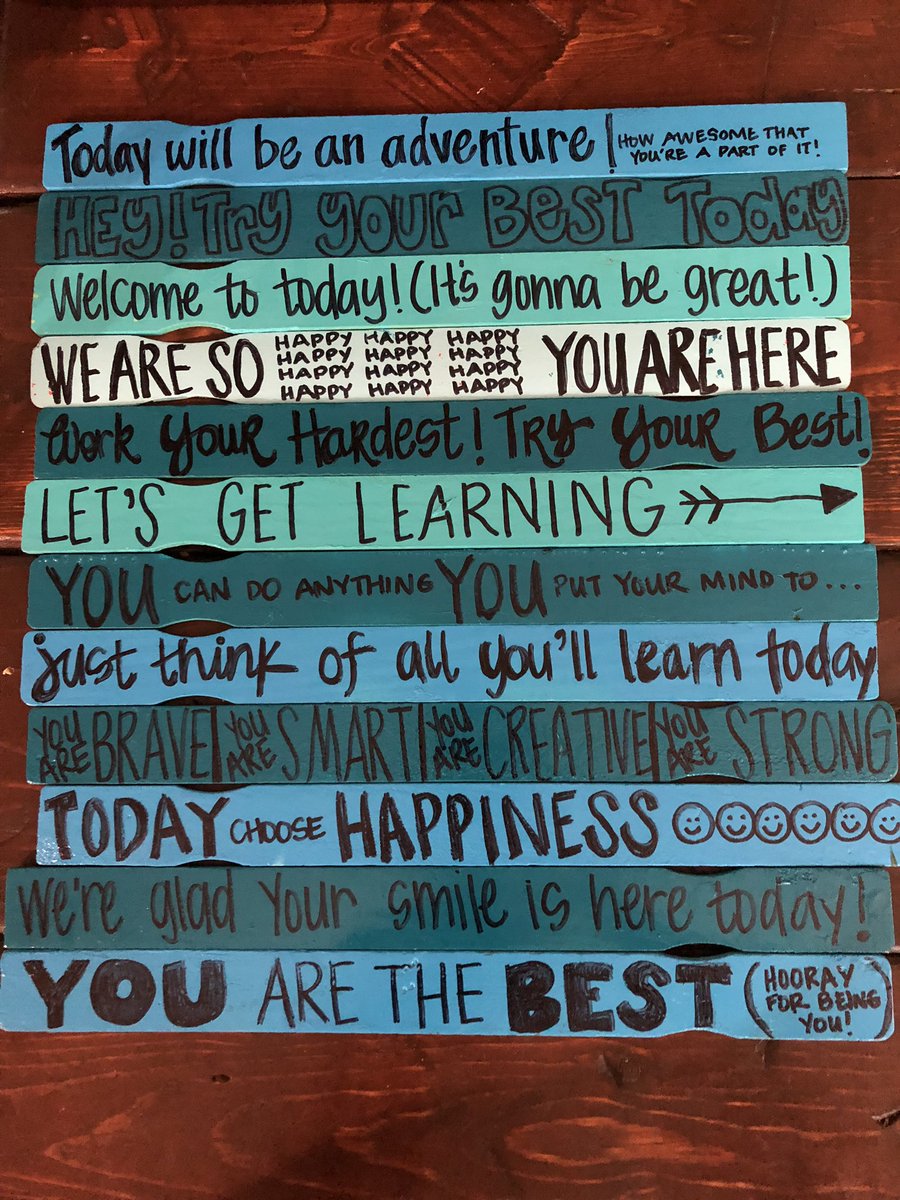 Today will be an adventure! HOW AWESOME THAT
YOU'RE A PART OF IT!
HEY! Try your BEST Today
Welcome to today! (It's gonna be great!)
WE ARE SO HAPPY HAPPY HAPPY YOU ARE HERE
HAPPY HAPPY HAPPY
HAPPY HAPPY HAPPY
HAPPY HAPPY HAPPY
Work Your Hardest! Try Your Best!
LET'S GET LEARNING
YOU CAN DO ANYTHING YOU PUT YOUR MIND TO...
just think of all you'll learn today
YOU ARE BRAVE | YOU ARE SMART | YOU ARE CREATIVE | YOU ARE STRONG
TODAY CHOOSE HAPPINESS
We're glad your smile is here today!
YOU ARE THE BEST (HOORAY
FOR BEING
YOU!)